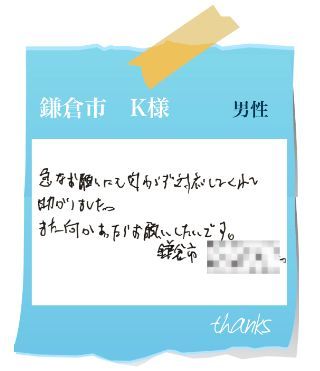 鎌倉市 K様 男性
急なお願いにも関わらず対応してくれて
助かりました。
また何かあったらお願いしたいです。
鎌倉市
thanks